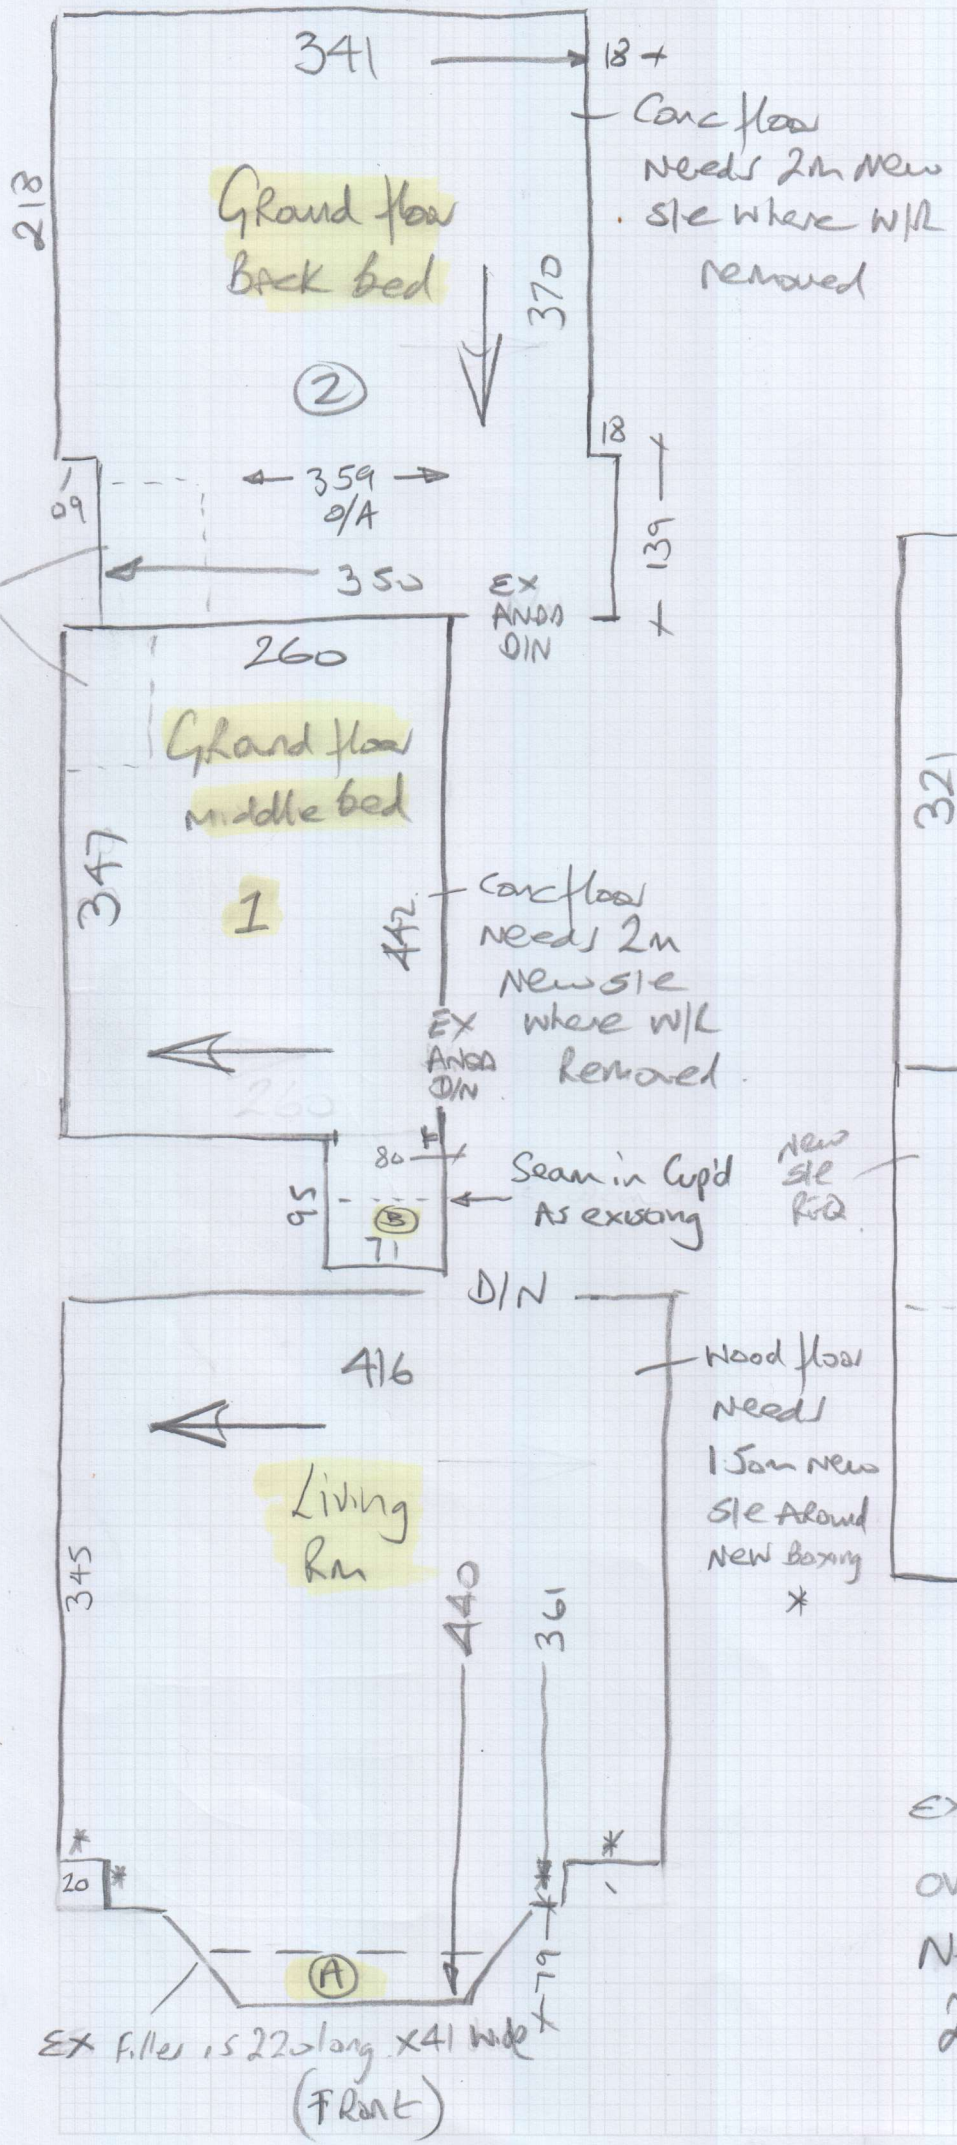 341
18
Conc floor
Needs 2m New
s/e where W/R
removed
213
Ground floor
Back bed
370
2
18
09
359
O/A
139
350
EX
ANDD
D/N
260
Ground floor
Middle bed
1
347
442
Conc floor
Needs 2m
New s/e
where W/R
Removed
EX
ANDD
D/N
260
80
95
B
71
Seam in Cup'd
As existing
321
New
s/e
REQ
D/N
416
Wood floor
Needs
1.50m New
s/e Around
New Boxing
*
Living
Rm
345
440
361
*
20
*
*
*
79
A
EX Filler is 220 long x 41 wide
(Front)